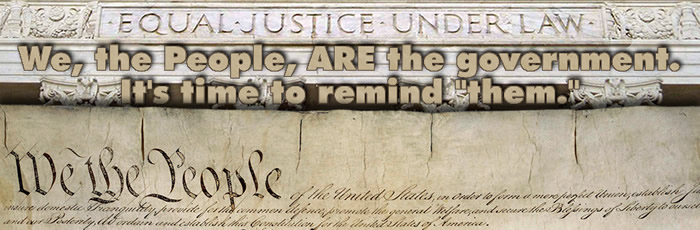 EQUAL·JUSTICE·UNDER·LAW·
We, the People, ARE the government.
It's time to remind "them."
We the People of the United States, in Order to form a more perfect Union, establish
insure domestic Tranquility, provide for the common defence, promote the general Welfare, and secure the Blessings of Liberty to ourse
and our Posterity, do ordain and establish this Constitution for the United States of America.